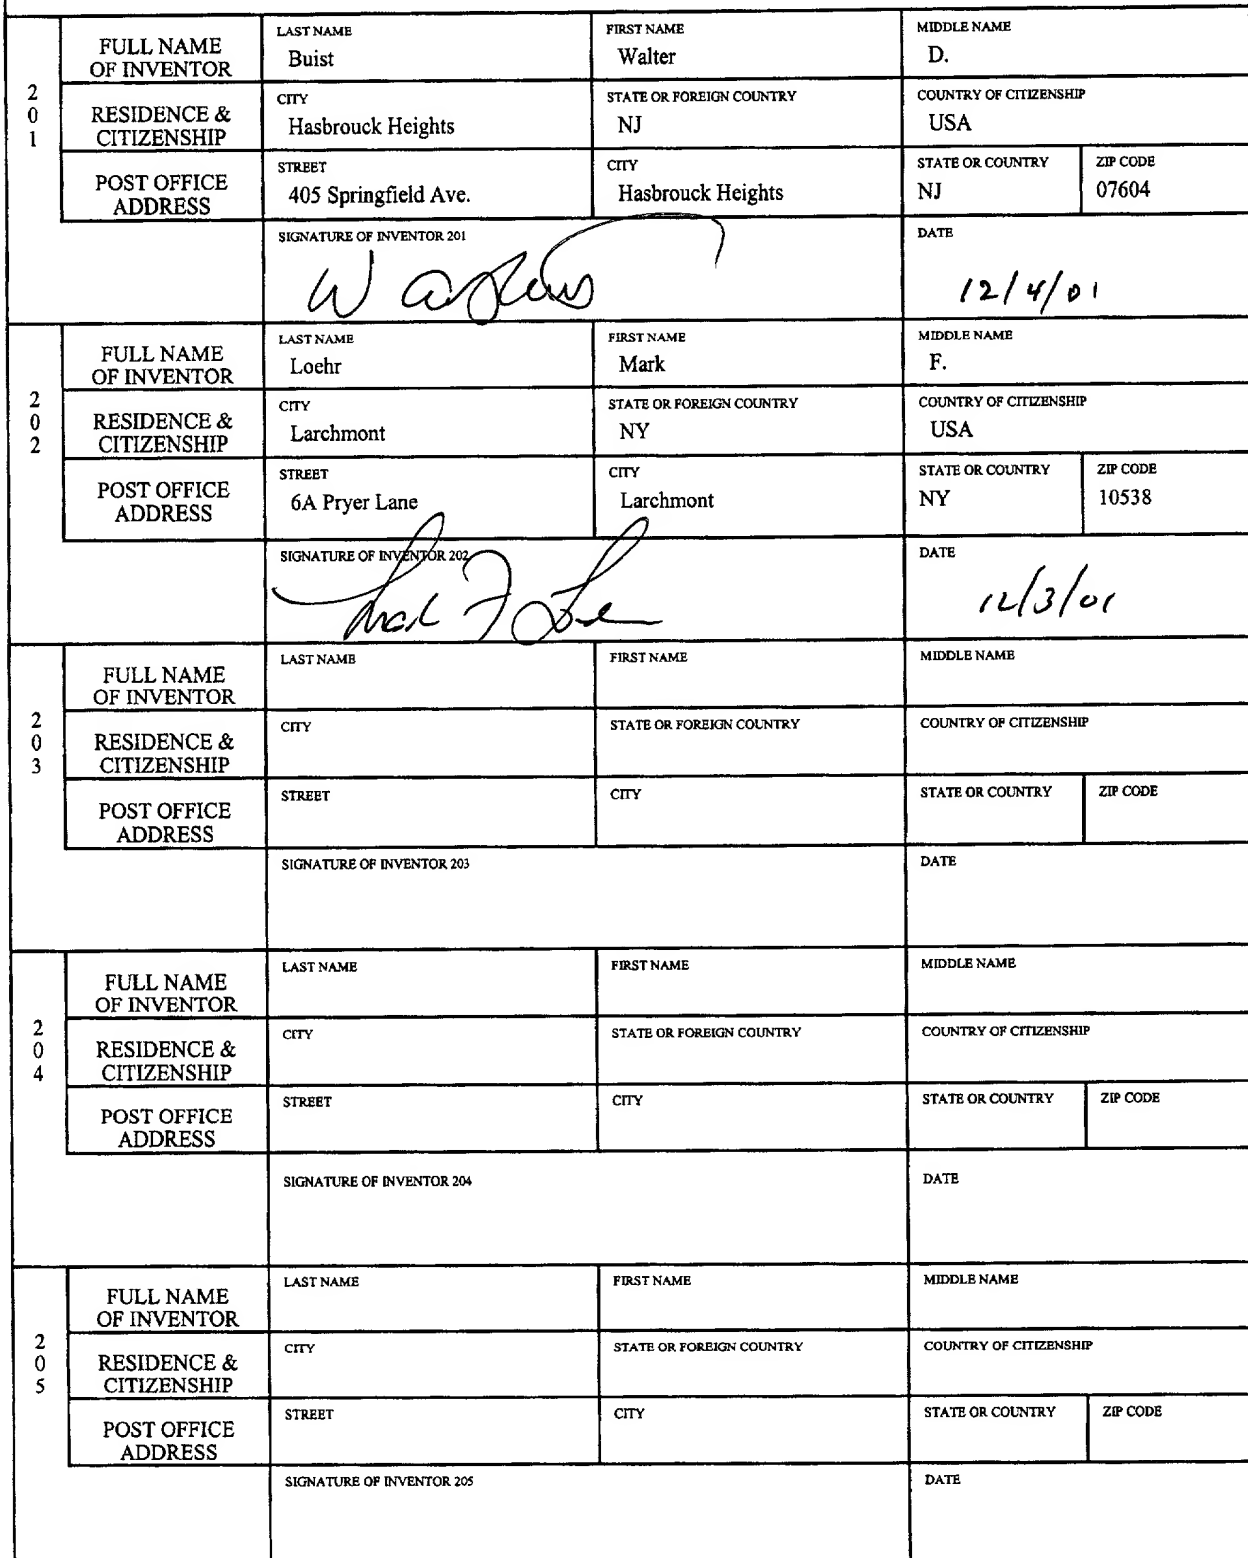 201
FULL NAME OF INVENTOR
LAST NAME
Buist
FIRST NAME
Walter
MIDDLE NAME
D.
RESIDENCE & CITIZENSHIP
CITY
Hasbrouck Heights
STATE OR FOREIGN COUNTRY
NJ
COUNTRY OF CITIZENSHIP
USA
POST OFFICE ADDRESS
STREET
405 Springfield Ave.
CITY
Hasbrouck Heights
STATE OR COUNTRY
NJ
ZIP CODE
07604
SIGNATURE OF INVENTOR 201
DATE
12/4/01
202
FULL NAME OF INVENTOR
LAST NAME
Loehr
FIRST NAME
Mark
MIDDLE NAME
F.
RESIDENCE & CITIZENSHIP
CITY
Larchmont
STATE OR FOREIGN COUNTRY
NY
COUNTRY OF CITIZENSHIP
USA
POST OFFICE ADDRESS
STREET
6A Pryer Lane
CITY
Larchmont
STATE OR COUNTRY
NY
ZIP CODE
10538
SIGNATURE OF INVENTOR 202
Mark F
DATE
12/3/01
203
FULL NAME OF INVENTOR
LAST NAME
FIRST NAME
MIDDLE NAME
RESIDENCE & CITIZENSHIP
CITY
STATE OR FOREIGN COUNTRY
COUNTRY OF CITIZENSHIP
POST OFFICE ADDRESS
STREET
CITY
STATE OR COUNTRY
ZIP CODE
SIGNATURE OF INVENTOR 203
DATE
204
FULL NAME OF INVENTOR
LAST NAME
FIRST NAME
MIDDLE NAME
RESIDENCE & CITIZENSHIP
CITY
STATE OR FOREIGN COUNTRY
COUNTRY OF CITIZENSHIP
POST OFFICE ADDRESS
STREET
CITY
STATE OR COUNTRY
ZIP CODE
SIGNATURE OF INVENTOR 204
DATE
205
FULL NAME OF INVENTOR
LAST NAME
FIRST NAME
MIDDLE NAME
RESIDENCE & CITIZENSHIP
CITY
STATE OR FOREIGN COUNTRY
COUNTRY OF CITIZENSHIP
POST OFFICE ADDRESS
STREET
CITY
STATE OR COUNTRY
ZIP CODE
SIGNATURE OF INVENTOR 205
DATE